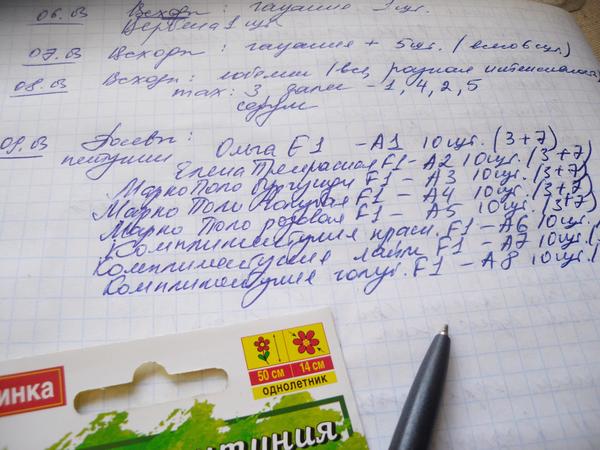 06.03 Всходы: гацания 1 шт.
Вербена 1 шт
07.03 Всходы: гацания + 5 шт. (всего 6 шт)
08.03 Всходы: лобелии (все, разная интенсивность)
max: 3 далее - 1, 4, 2, 5
09.03 Посевы:
петунии Ольга F1 - А1 10 шт. (3+7)
Елена Прекрасная F1 - А2 10 шт. (3+7)
Марко Поло бургунди F1 - А3 10 шт. (3+7)
Марко Поло голубая F1 - А4 10 шт. (3+7)
Марко Поло розовая F1 - А5 10 шт. (3+7)
Комплиментуния красн. F1 - А6 10 шт.
Комплиментуния лайм F1 - А7 10 шт. (
Комплиментуния голуб. F1 - А8 10 шт. (
инка
50 см 14 см
однолетник
туния